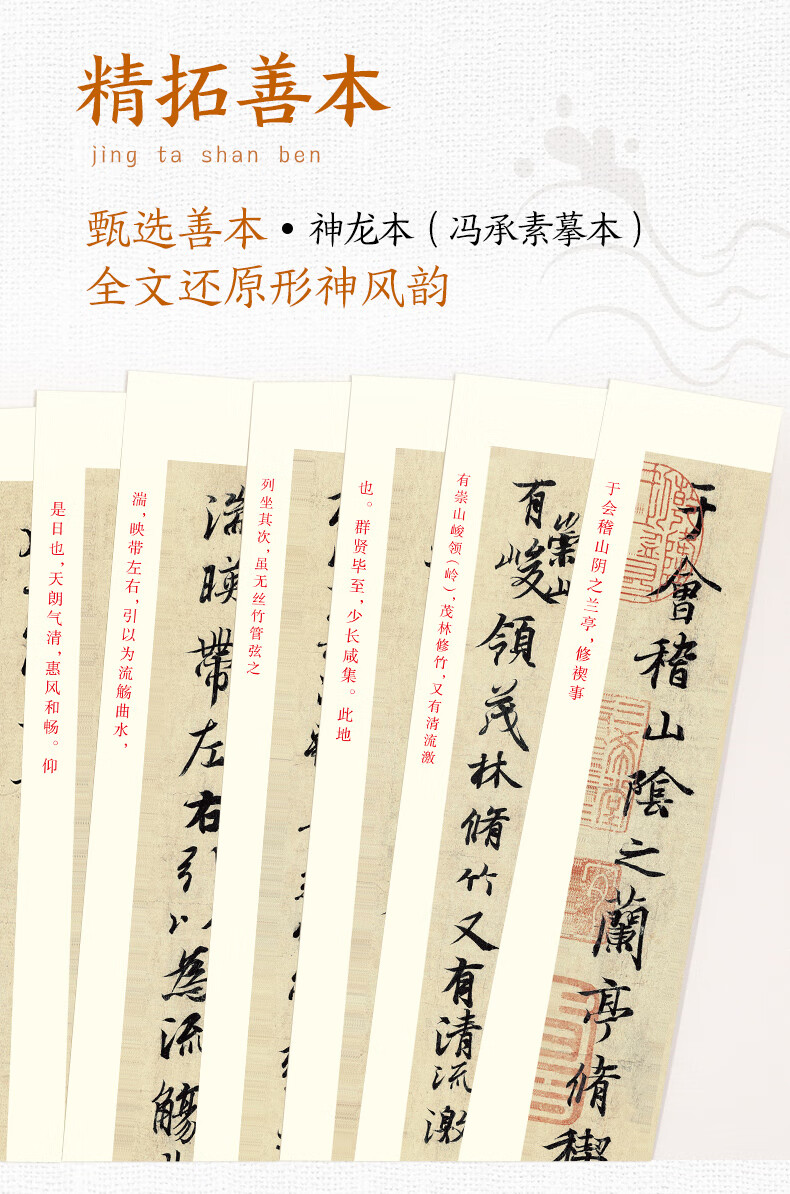 精拓善本
jing ta shan ben
甄选善本·神龙本（冯承素摹本）
全文还原形神风韵
于会稽山阴之兰亭，修禊事
于會稽山陰之蘭亭脩禊
有崇山峻领（岭），茂林修竹，又有清流激
有崇山峻領茂林脩竹又有清流激
也。群贤毕至，少长咸集。此地
列坐其次，虽无丝竹管弦之
湍，映带左右，引以为流觞曲水，
湍暎帶左右引以為流觴
是日也，天朗气清，惠风和畅。仰